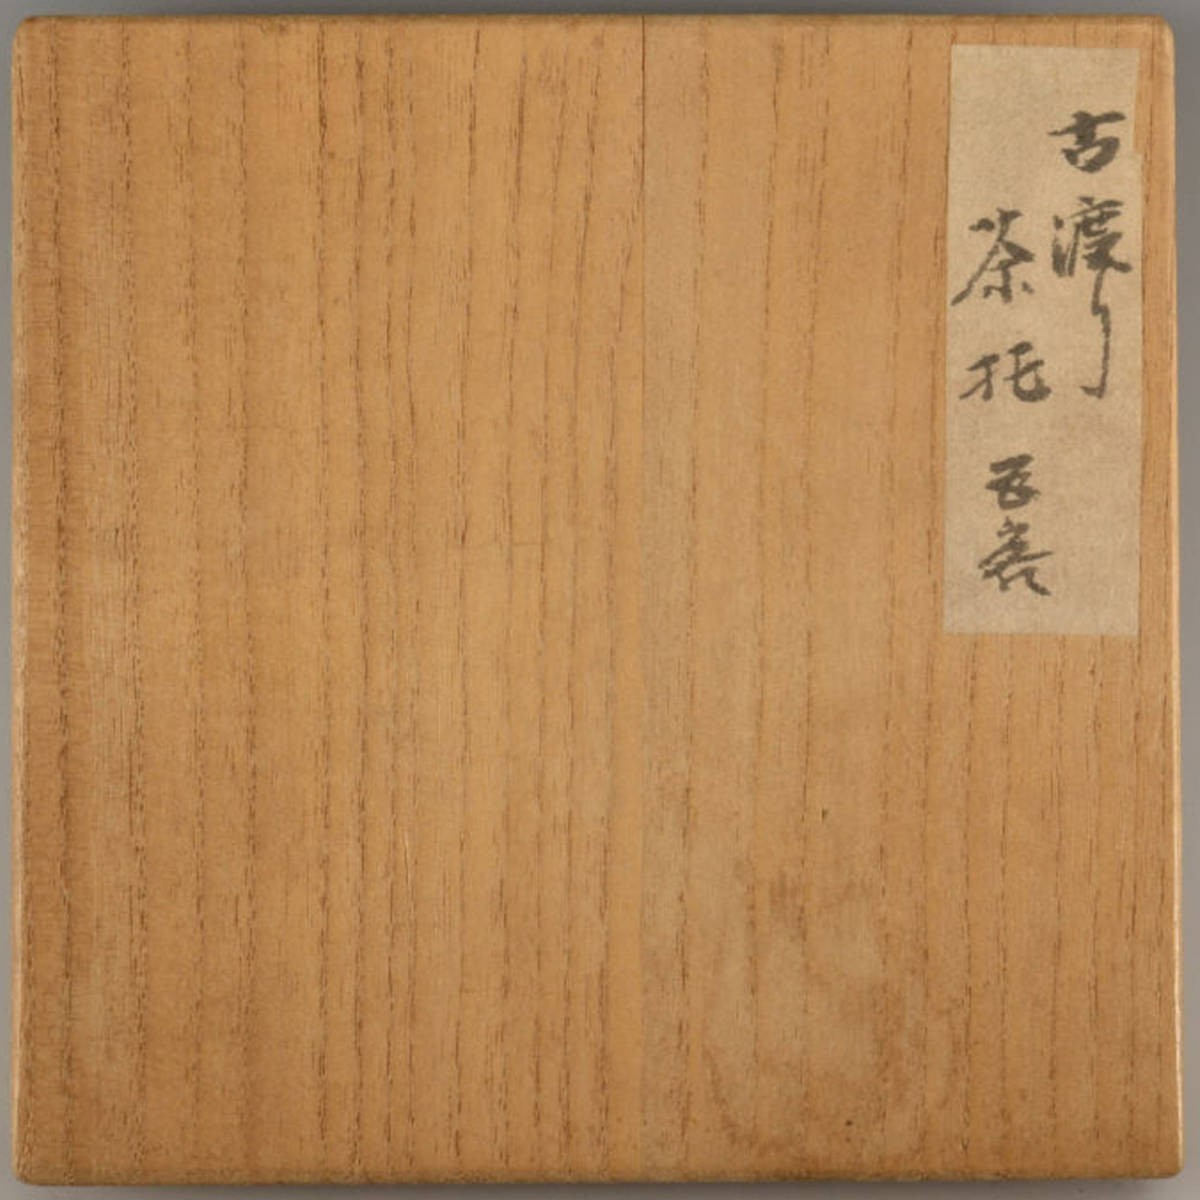 古渡り
茶托 五客